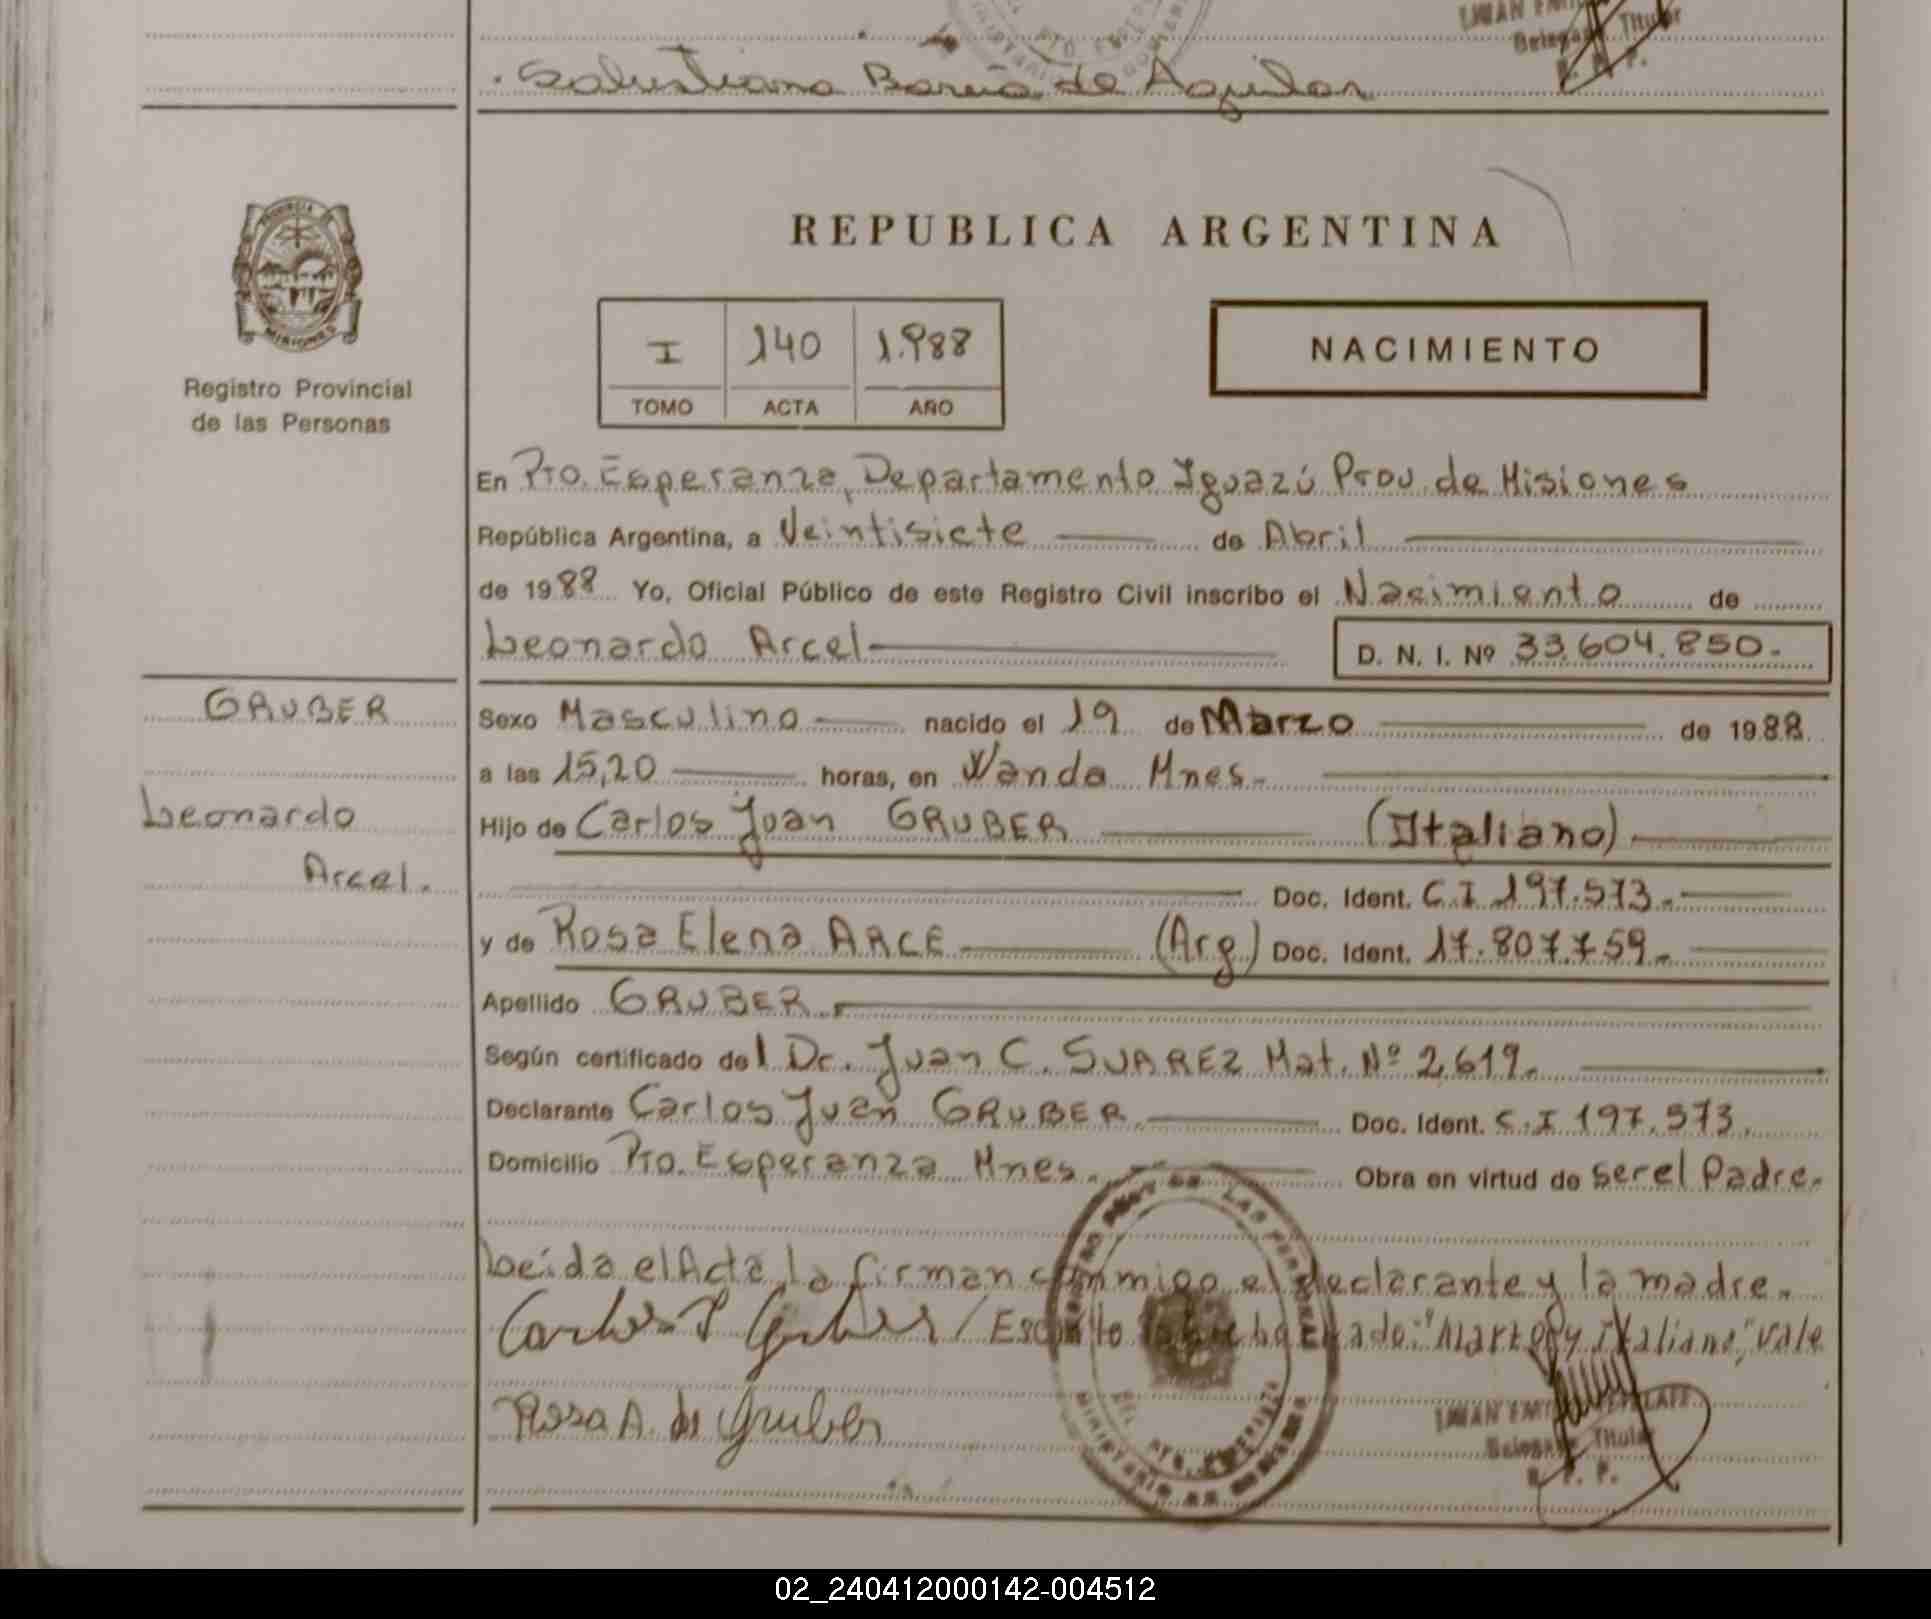 Titular
R. P. P.
Salustiana Barúa de Aguilar
PROVINCIA DE
MISIONES
Registro Provincial
de las Personas
REPUBLICA ARGENTINA
I 140 1.988
TOMO ACTA AÑO
NACIMIENTO
En Pto. Esperanza, Departamento Iguazú Prov. de Misiones
República Argentina, a Veintisiete de Abril
de 1988 Yo, Oficial Público de este Registro Civil inscribo el Nacimiento de
Leonardo Arcel D. N. I. Nº 33.604.850.-
GRUBER
Leonardo
Arcel.
Sexo Masculino nacido el 19 de Marzo de 1988
a las 15,20 horas, en Wanda Mnes.-
Hijo de Carlos Juan GRUBER (Italiano)
Doc. Ident. C.I 197.573.-
y de Rosa Elena ARCE (Arg) Doc. Ident. 17.807.759.-
Apellido GRUBER.
Según certificado del Dr. Juan C. SUAREZ Mat. Nº 2.619.
Declarante Carlos Juan GRUBER Doc. Ident. C.I 197.573.
Domicilio Pto. Esperanza Mnes. Obra en virtud de ser el Padre.
Leída el Acta, la firman conmigo el declarante y la madre.
Carlos J Gruber / Escrito sobre borrado: "Marzo y Italiano," Vale
Rosa A. de Gruber
Titular
R. P. P.
02_240412000142-004512